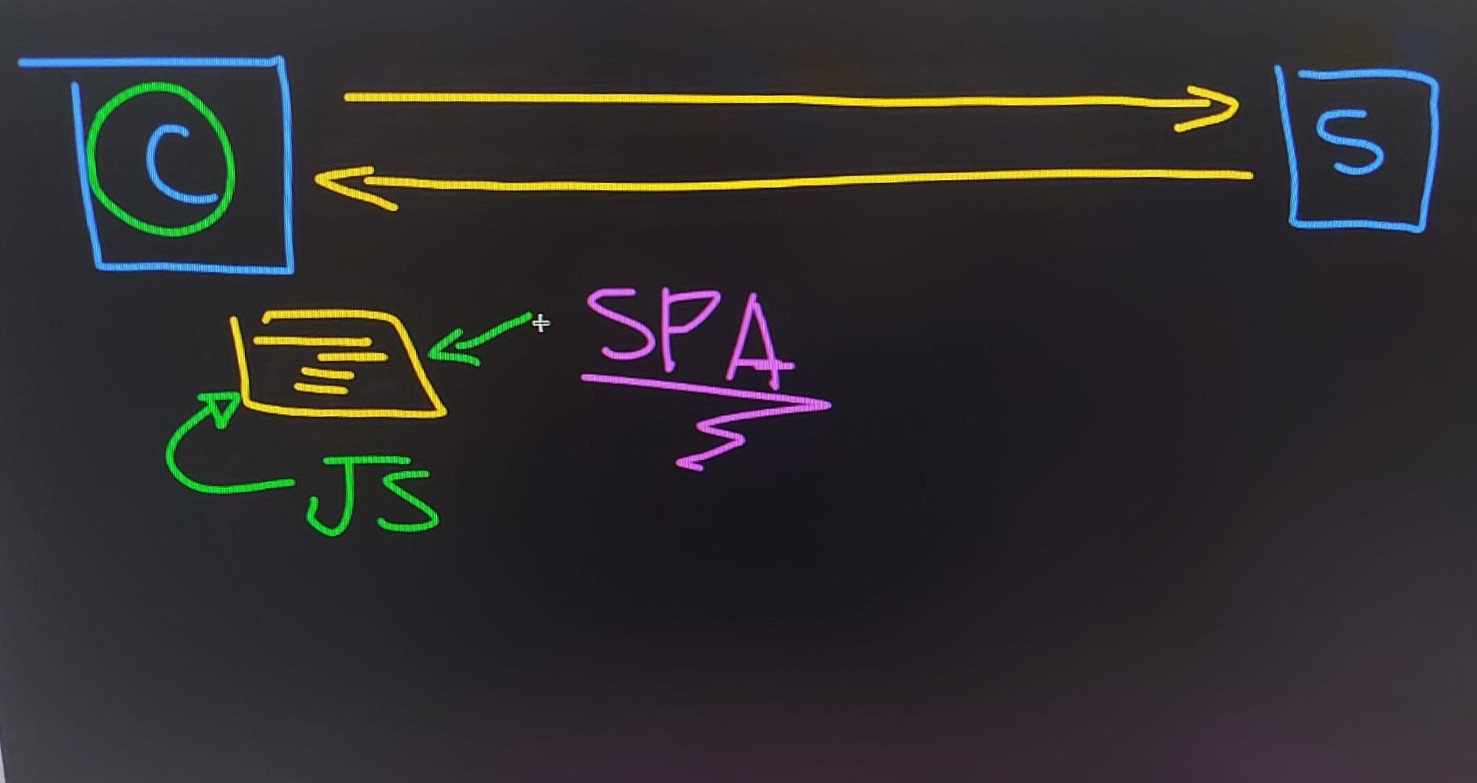 C
S
SPA
JS